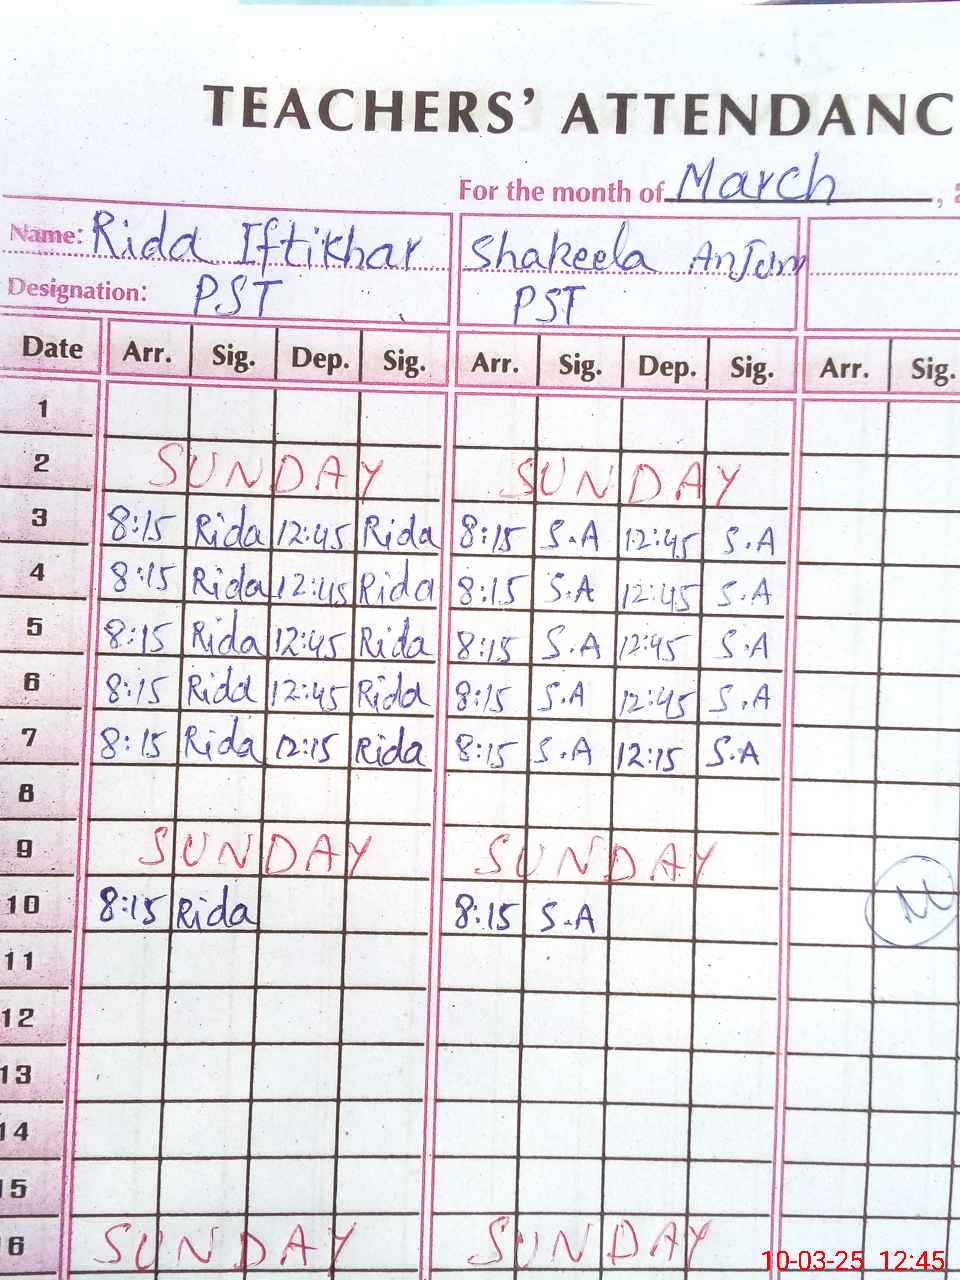 TEACHERS' ATTENDANC
For the month of March, 2
Name: Rida Iftikhar Shakeela Anjum
Designation: PST PST
Date Arr. Sig. Dep. Sig. Arr. Sig. Dep. Sig. Arr. Sig.
1
2 SUNDAY SUNDAY
3 8:15 Rida 12:45 Rida 8:15 S.A 12:45 S.A
4 8:15 Rida 12:45 Rida 8:15 S.A 12:45 S.A
5 8:15 Rida 12:45 Rida 8:15 S.A 12:45 S.A
6 8:15 Rida 12:45 Rida 8:15 S.A 12:45 S.A
7 8:15 Rida 12:15 Rida 8:15 S.A 12:15 S.A
8
9 SUNDAY SUNDAY
10 8:15 Rida 8:15 S.A
11
12
13
14
15
6 SUNDAY SUNDAY
10-03-25 12:45